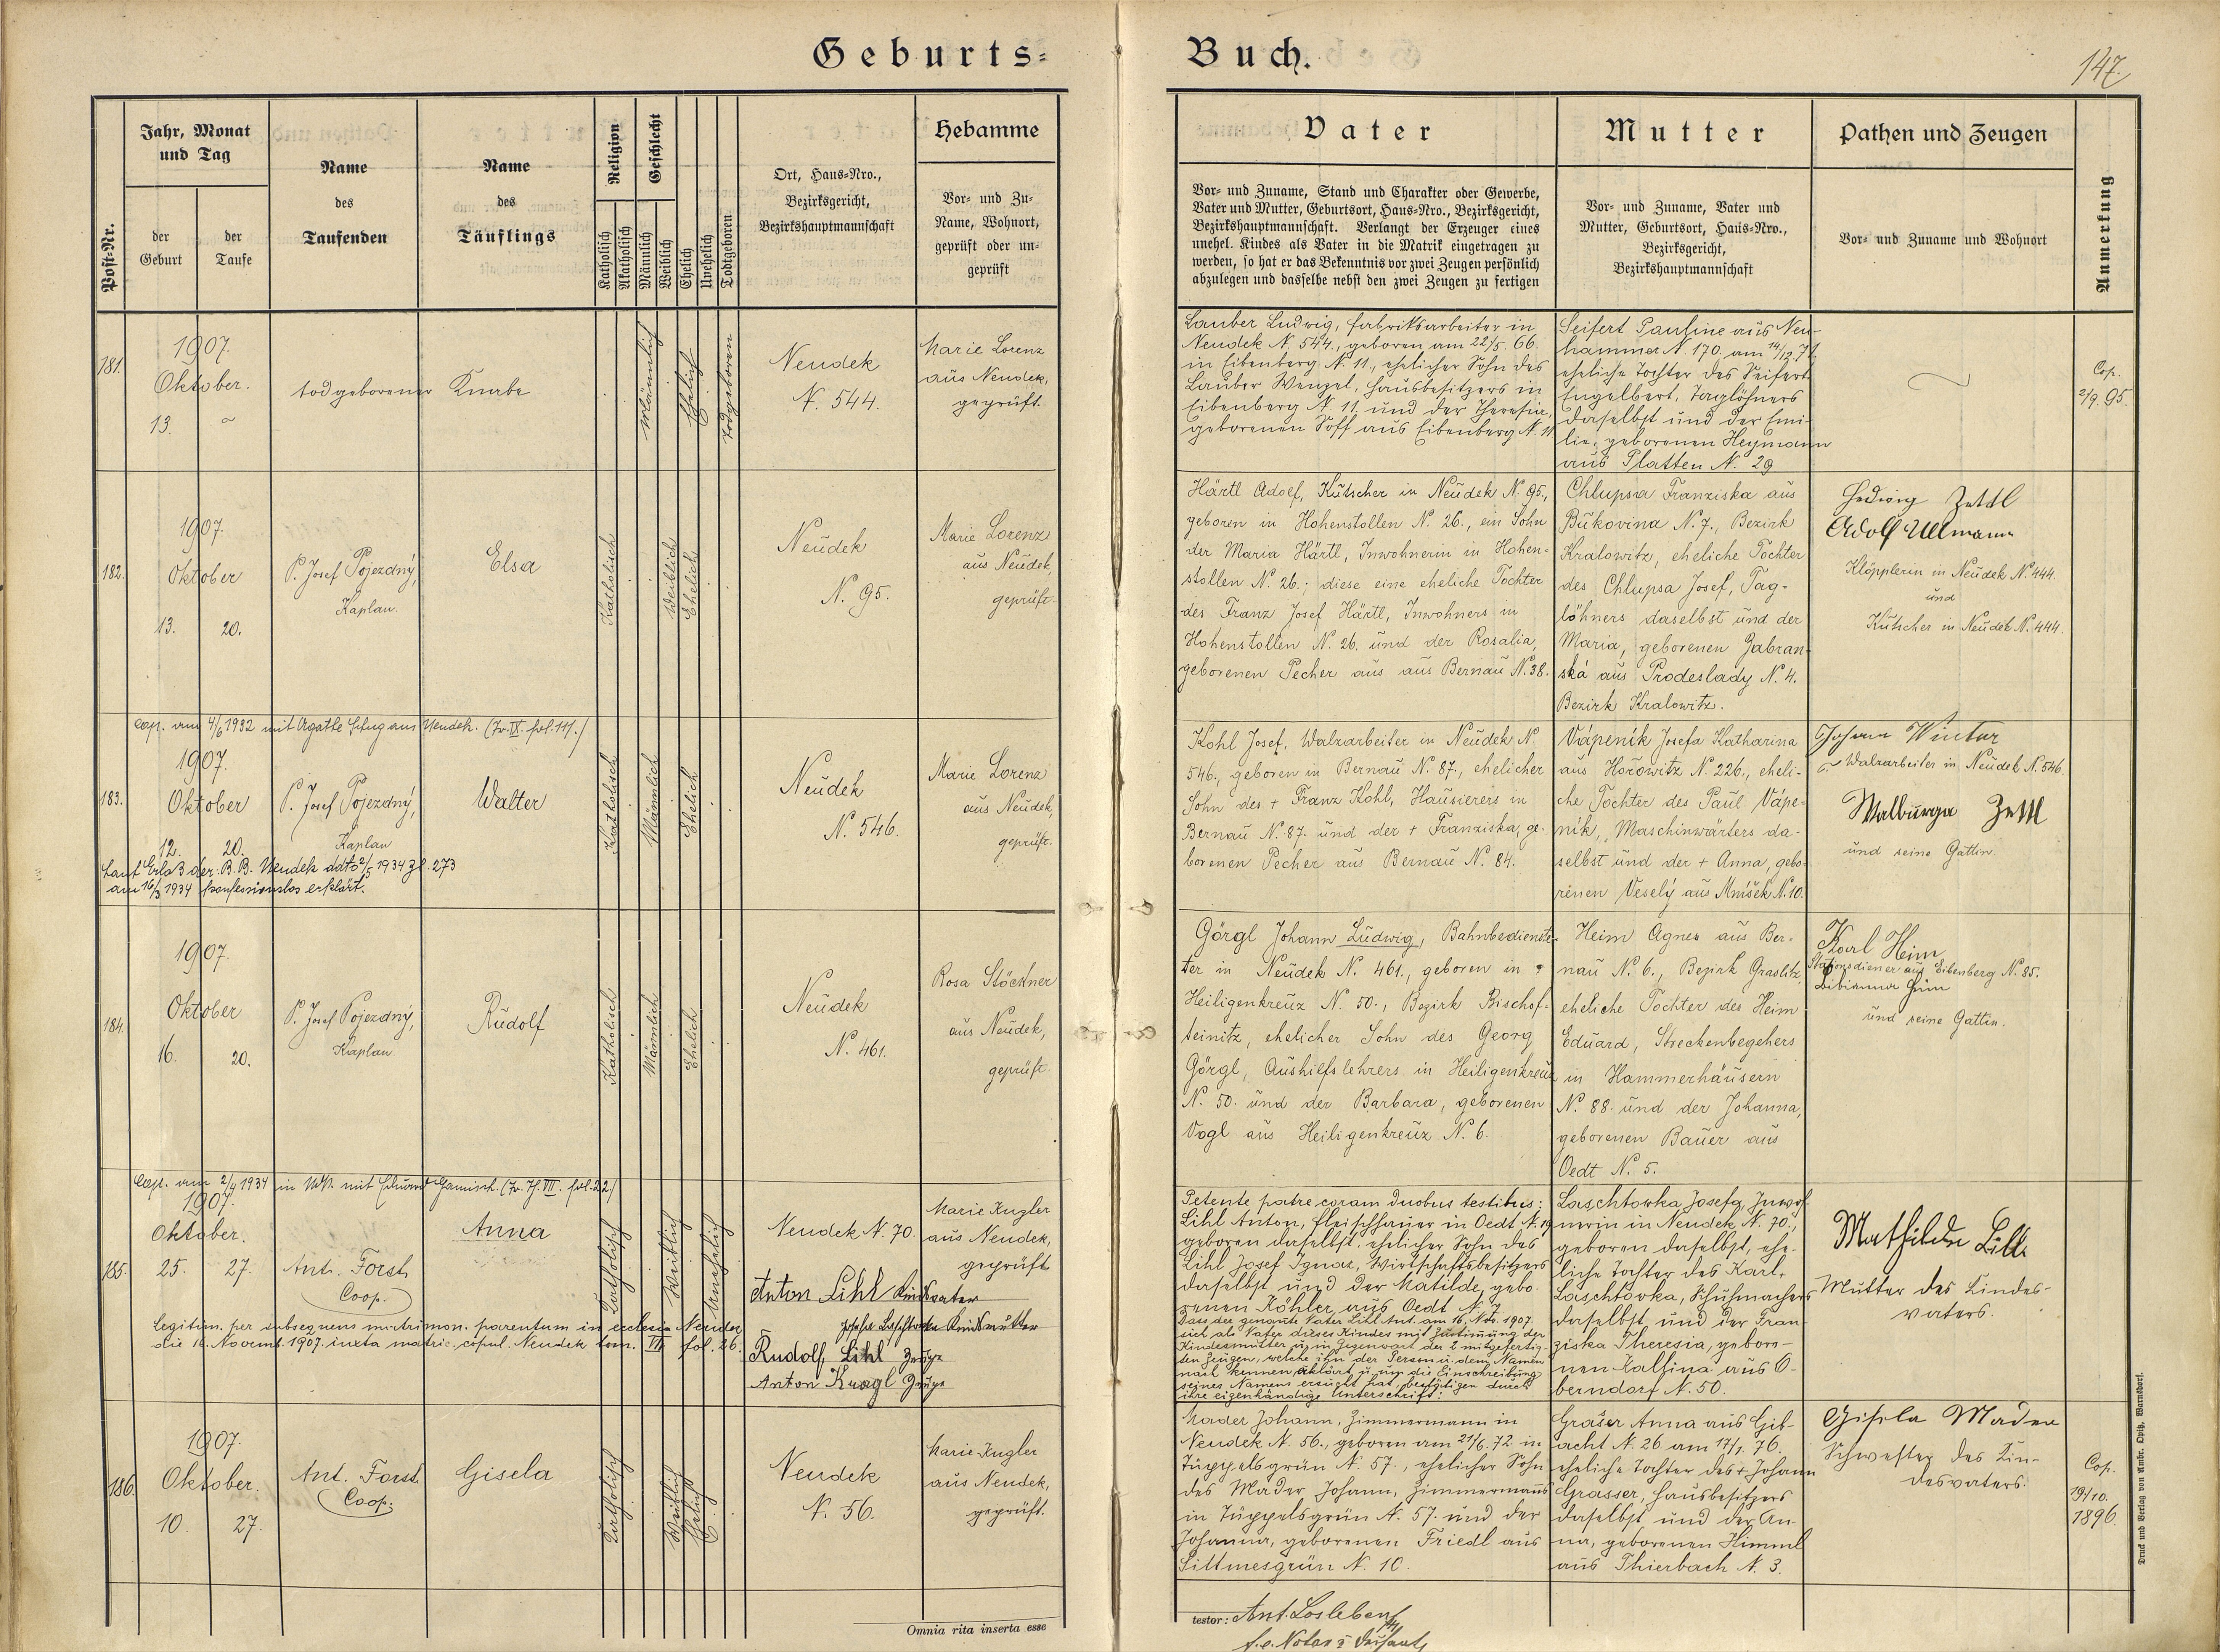 Geburts=
Buch.
147.
Post=Nr.
Jahr, Monat
und Tag
der
Geburt
der
Taufe
Name
des
Taufenden
Name
des
Täuflings
Religion
Katholisch
Akatholisch
Geschlecht
Männlich
Weiblich
Ehelich
Unehelich
Todtgeboren
Ort, Haus=Nro.,
Bezirksgericht,
Bezirkshauptmannschaft
Hebamme
Vor= und Zu=
Name, Wohnort,
geprüft oder un=
geprüft
Vater
Vor= und Zuname, Stand und Charakter oder Gewerbe,
Vater und Mutter, Geburtsort, Haus=Nro., Bezirksgericht,
Bezirkshauptmannschaft. Verlangt der Erzeuger eines
unehel. Kindes als Vater in die Matrik eingetragen zu
werden, so hat er das Bekenntnis vor zwei Zeugen persönlich
abzulegen und dasselbe nebst den zwei Zeugen zu fertigen
Mutter
Vor= und Zuname, Vater und
Mutter, Geburtsort, Haus=Nro.,
Bezirksgericht,
Bezirkshauptmannschaft
Pathen und Zeugen
Vor= und Zuname und Wohnort
Anmerkung
181.
1907.
Oktober.
13.
todgeborener Knabe
Männlich
Ehelich
Todgeboren
Neudek
N. 544.
Marie Lorenz
aus Neudek,
geprüft.
Lauber Ludwig, Fabriksarbeiter in
Neudek N. 544., geboren am 22/5. 66.
in Eibenberg N. 11., ehelicher Sohn des
Lauber Wenzel, Hausbesitzers in
Eibenberg N. 11 und der Theresia,
geborenen Soff aus Eibenberg N. 11
Seifert Pauline aus Neu-
hammer N. 170. am 14/12. 71.
eheliche Tochter des Seifert
Engelbert, Taglöhners
daselbst und der Emi-
lie, geborenen Heymann
aus Platten N. 29
Cop.
2/9. 95.
182.
1907.
Oktober
13. 20.
P. Josef Pojezdný,
Kaplan.
Elsa
Katholisch
Weiblich
Ehelich
Neudek
N. 95.
Marie Lorenz
aus Neudek,
geprüft.
Härtl Adolf, Kutscher in Neudek N. 95.,
geboren in Hohenstollen N. 26., ein Sohn
der Maria Härtl, Inwohnerin in Hohen-
stollen N. 26.; diese eine eheliche Tochter
des Franz Josef Härtl, Inwohners in
Hohenstollen N. 26. und der Rosalia,
geborenen Pecher aus aus Bernau N. 38.
Chlupsa Franziska aus
Bukovina N. 7., Bezirk
Kralowitz, eheliche Tochter
des Chlupsa Josef, Tag-
löhners daselbst und der
Maria, geborenen Zabran-
ská aus Prodeslady N. 4.
Bezirk Kralowitz.
Hedwig Zettl
Adolf Ullmann
Klöpplerin in Neudek N. 444.
und
Kutscher in Neudek N. 444.
cop. am 4/6 1932 mit Agathe aus Neudek. (Tr. IX. fol. 111.)
183.
1907.
Oktober
12. 20.
P. Josef Pojezdný,
Kaplan
Walter
Katholisch
Männlich
Ehelich
Neudek
N. 546.
Marie Lorenz
aus Neudek,
geprüft.
Laut Erlaß der B. B. Neudek ddto 2/5 1934 Zl. 273
am 16/3 1934 konfessionslos erklärt.
Kohl Josef, Walzarbeiter in Neudek N.
546., geboren in Bernau N. 87., ehelicher
Sohn des + Franz Kohl, Hausierers in
Bernau N. 87. und der + Franziska, ge-
borenen Pecher aus Bernau N. 84.
Vápeník Josefa Katharina
aus Hořowitz N. 226., eheli-
che Tochter des Paul Vápe-
ník, Maschinwärters da-
selbst und der + Anna, gebo-
renen Veselý aus Mníšek N. 10.
Johann Winter
Walzarbeiter in Neudek N. 546.
Walburga Zettl
und seine Gattin.
184.
1907.
Oktober
16. 20.
P. Josef Pojezdný,
Kaplan.
Rudolf
Katholisch
Männlich
Ehelich
Neudek
N. 461.
Rosa Stöckner
aus Neudek,
geprüft.
Görgl Johann Ludwig, Bahnbedienste-
ter in Neudek N. 461., geboren in
Heiligenkreuz N. 50., Bezirk Bischof-
teinitz, ehelicher Sohn des Georg
Görgl, Aushilfslehrers in Heiligenkreuz
N. 50. und der Barbara, geborenen
Vogl aus Heiligenkreuz N. 6.
Heim Agnes aus Ber-
nau N. 6., Bezirk Graslitz,
eheliche Tochter des Heim
Eduard, Streckenbegehers
in Hammerhäusern
N. 88. und der Johanna,
geborenen Bauer aus
Oedt N. 5.
Karl Heim
Stationsdiener aus Eibenberg N. 85.
Bibianna Heim
und seine Gattin.
Cop. am 2/4 1934 in mit Eduard (Tr. VIII. fol. 22)
185.
1907.
Oktober.
25. 27.
Ant. Forst
Coop.
Anna
Katholisch
Weiblich
Unehelich
Neudek N. 70.
Marie Kugler
aus Neudek,
geprüft
Anton Lihl Kindsvater
Josefa Laschtowka Kindsmutter
Rudolf Lihl Zeuge
Anton Kragl Zeuge
legitim. per subsequens matrimon. parentum in ecclesia Neudek
die 16. Novemb. 1907. iuxta matric. copul. Neudek tom. VII fol. 26.
Petente patre coram duobus testibus:
Lihl Anton, Fleischhauer in Oedt N. 19
geboren daselbst, ehelicher Sohn des
Lihl Josef Ignaz, Wirtschaftsbesitzers
daselbst und der Matilde, gebo-
renen Köhler aus Oedt N. 7
Dass der genannte Vater Lihl Ant. am 16. Nov. 1907.
sich als Vater dieses Kindes mit Zustimmung der
Kindesmutter u. in Gegenwart der 2 mitgefertig-
ten Zeugen, welche ihn der Person u. dem Namen
nach kennen erklärt u. um die Einschreibung
seines Namens ersucht hat, bestätigen durch
ihre eigenhändige Unterschrift:
Laschtowka Josefa, Inwoh-
nerin in Neudek N. 70.,
geboren daselbst, ehe-
liche Tochter des Karl
Laschtowka, Schuhmachers
daselbst und der Fran-
ziska Theresia, gebore-
nen Kalfina aus O-
berndorf N. 50.
Mathilde Lihl
Mutter des Kindes-
vaters.
186.
1907.
Oktober.
10. 27.
Ant. Forst
Coop.
Gisela
Katholisch
Weiblich
Ehelich
Neudek
N. 56.
Marie Kugler
aus Neudek,
geprüft.
Mader Johann, Zimmermann in
Neudek N. 56., geboren am 21/6. 72. in
Tüppelsgrün N. 57., ehelicher Sohn
des Mader Johann, Zimmermanns
in Tüppelsgrün N. 57. und der
Johanna, geborenen Friedl aus
Sittmesgrün N. 10.
Graser Anna aus Gib-
acht N. 26 am 17/1. 76.
eheliche Tochter des + Johann
Grasser, Hausbesitzers
daselbst und der An-
na, geborenen Himml
aus Thierbach N. 3.
Gisela Mader
Schwester des Kin-
desvaters.
Cop.
19/10.
1896.
Omnia rita inserta esse
testor: Ant. Losleben
f. e. Notar
Druck und Verlag von Ambr. Opitz, Warnsdorf.